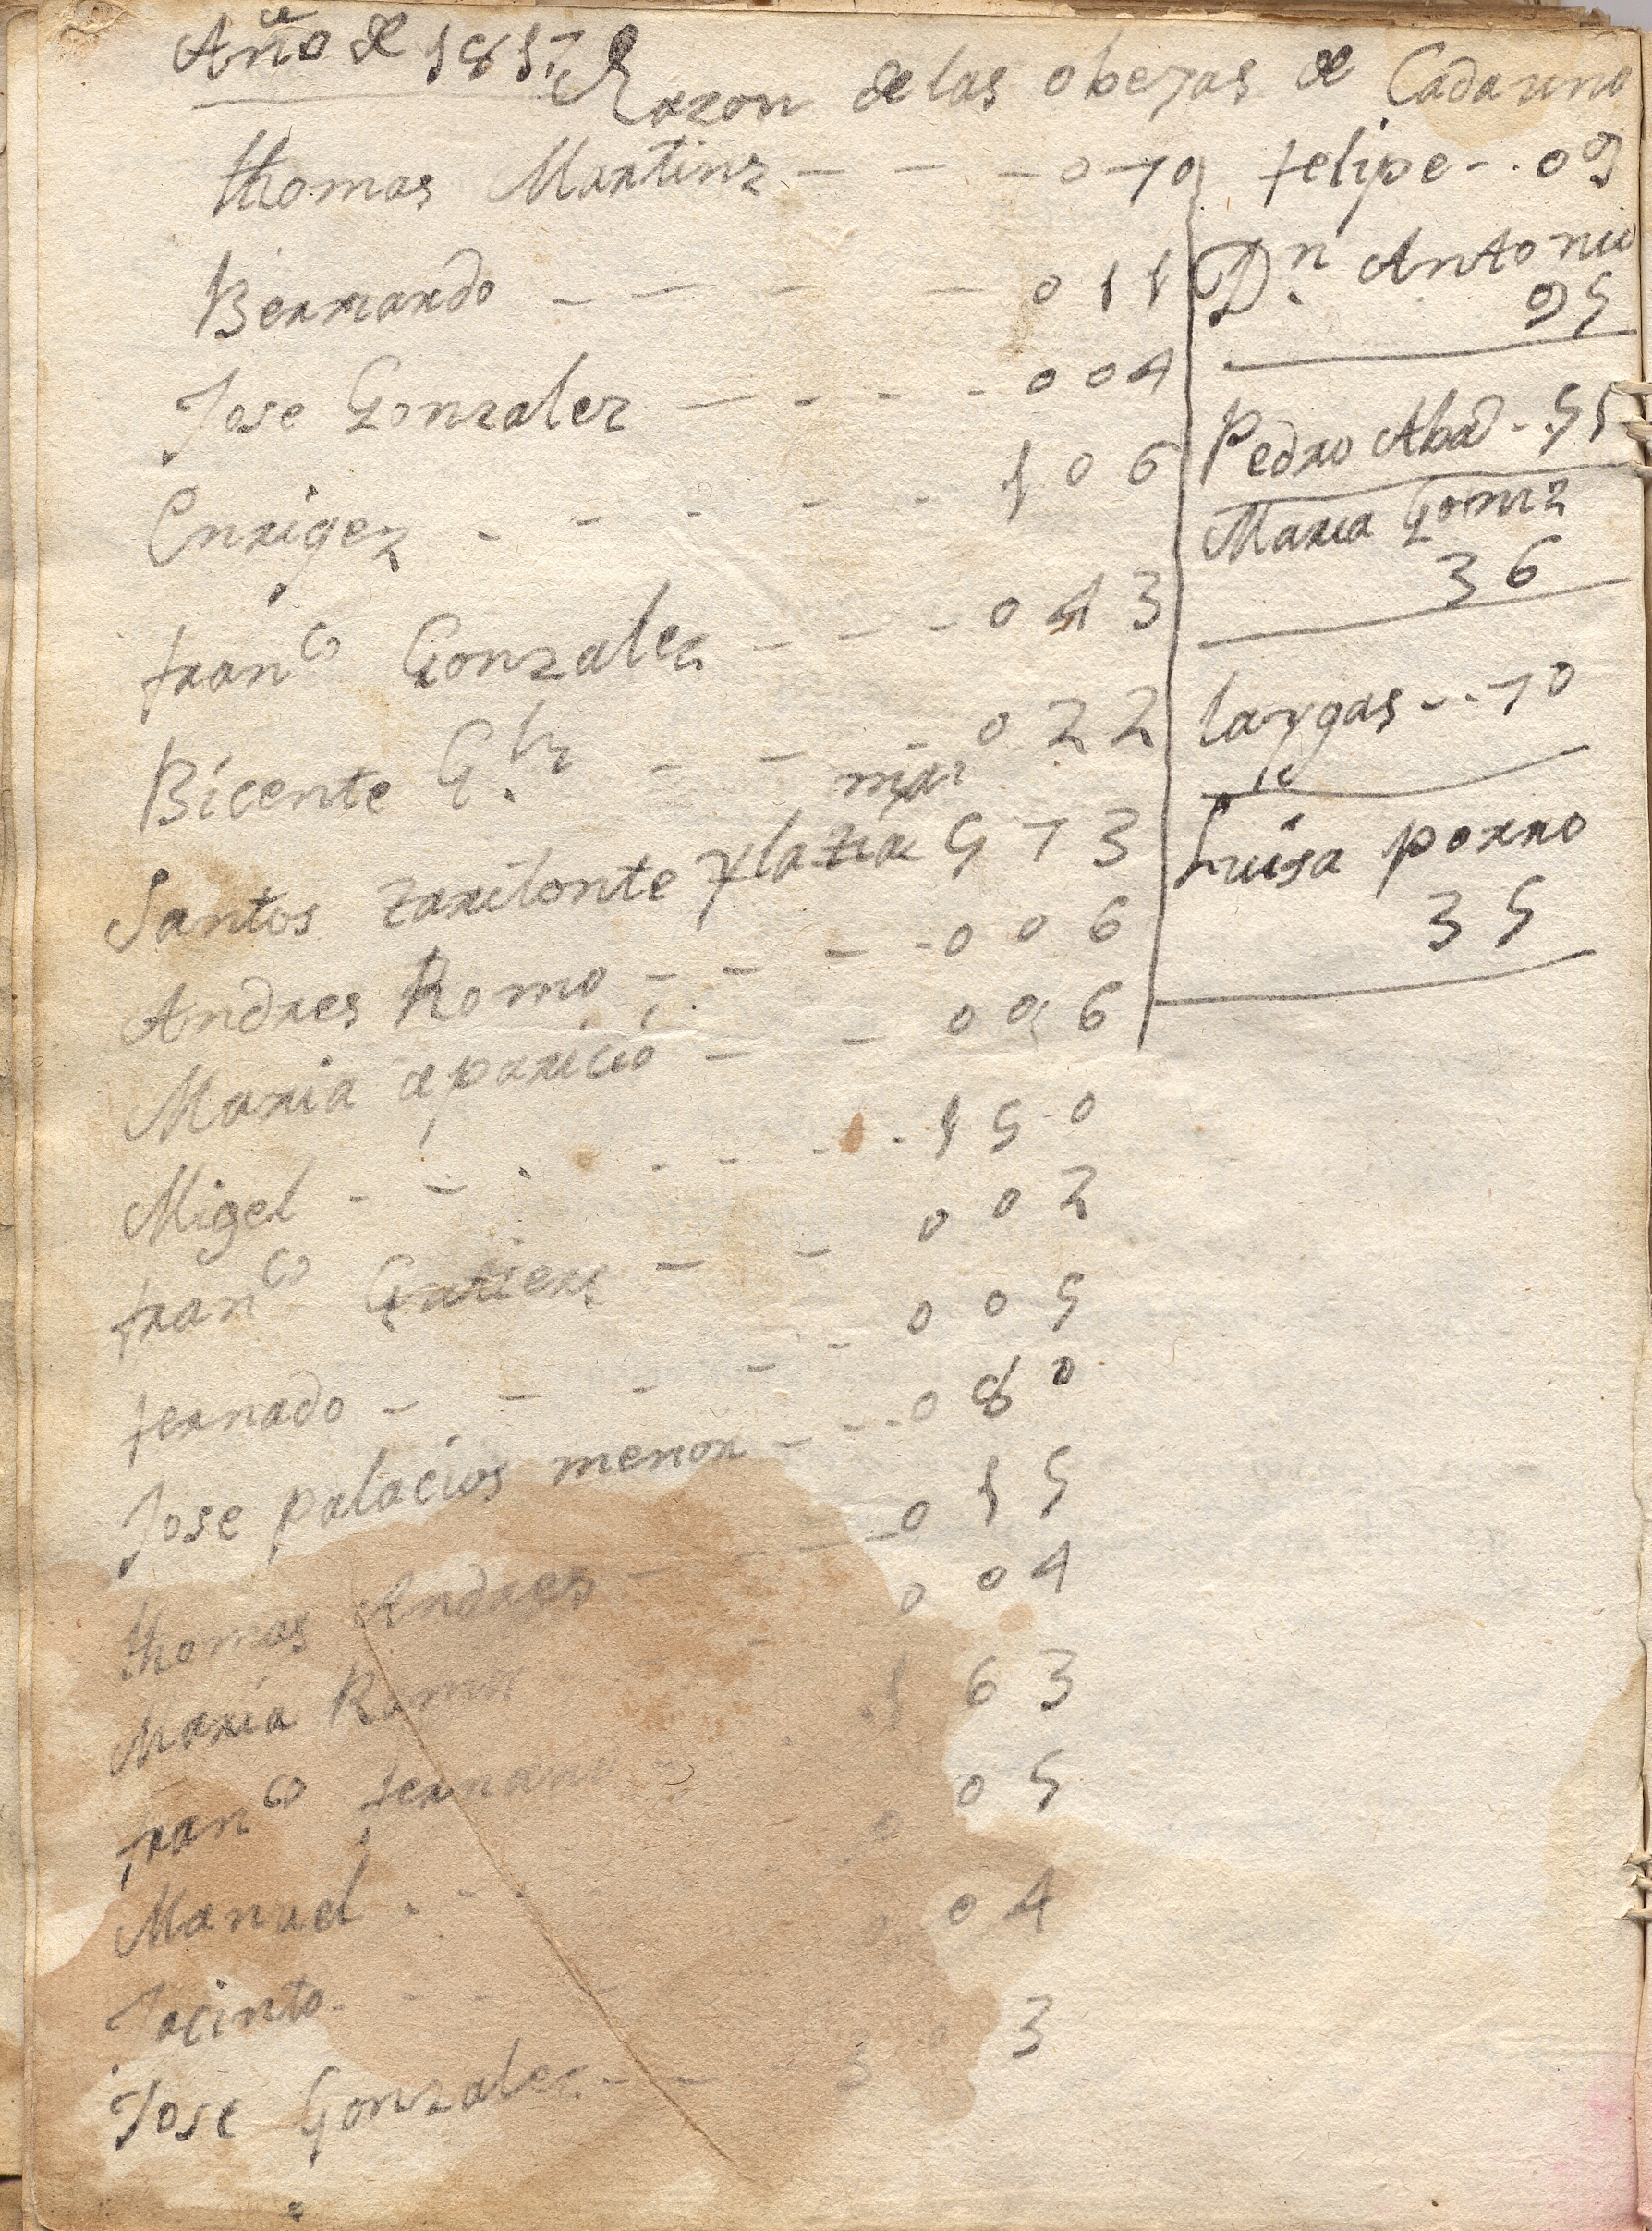 Año de 1817 Razon de las obejas de Cada uno
thomas Martinz - - - 0 7 0
Bernardo - - - - 0 1 1
Jose Gonzalez - - - - 0 0 4
Enrigez - - - - - 1 0 6
franco Gonzalez - - - 0 4 3
Bicente G.lz - - - 0 2 2
Santos zarilonte y la tia mar 5 7 3
Andres Romo - - - - 0 0 6
Maria aparicio - - 0 0 6
Migel - - - - - - - 1 5 0
franco Gutierz - - 0 0 2
fernado - - - - - 0 0 5
Jose palacios menor - - - 0 8 0
thomas Andres - - - - 0 1 5
Maria Romo - - 0 0 4
franco - - 1 6 3
Manuel - - - 0 0 5
Jacinto - - - 0 4
Jose Gonzalez - - 3
felipe - - 0 9
Dn. Antonio
9 5
Pedro Abad - - 5 1
Maria Gomz
3 6
largas - - 7 0
Luisa porro
3 5